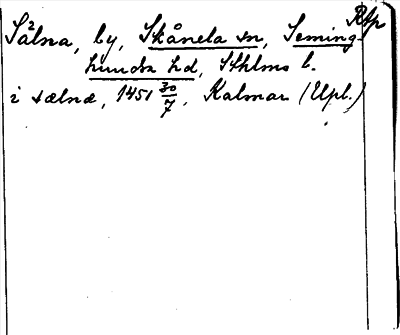 Rtp
Sälna, by, Skånela sn, Seming-
hundra hd, Sthlms l.
i sælnæ, 1451 30/7, Kalmar (Upl.)